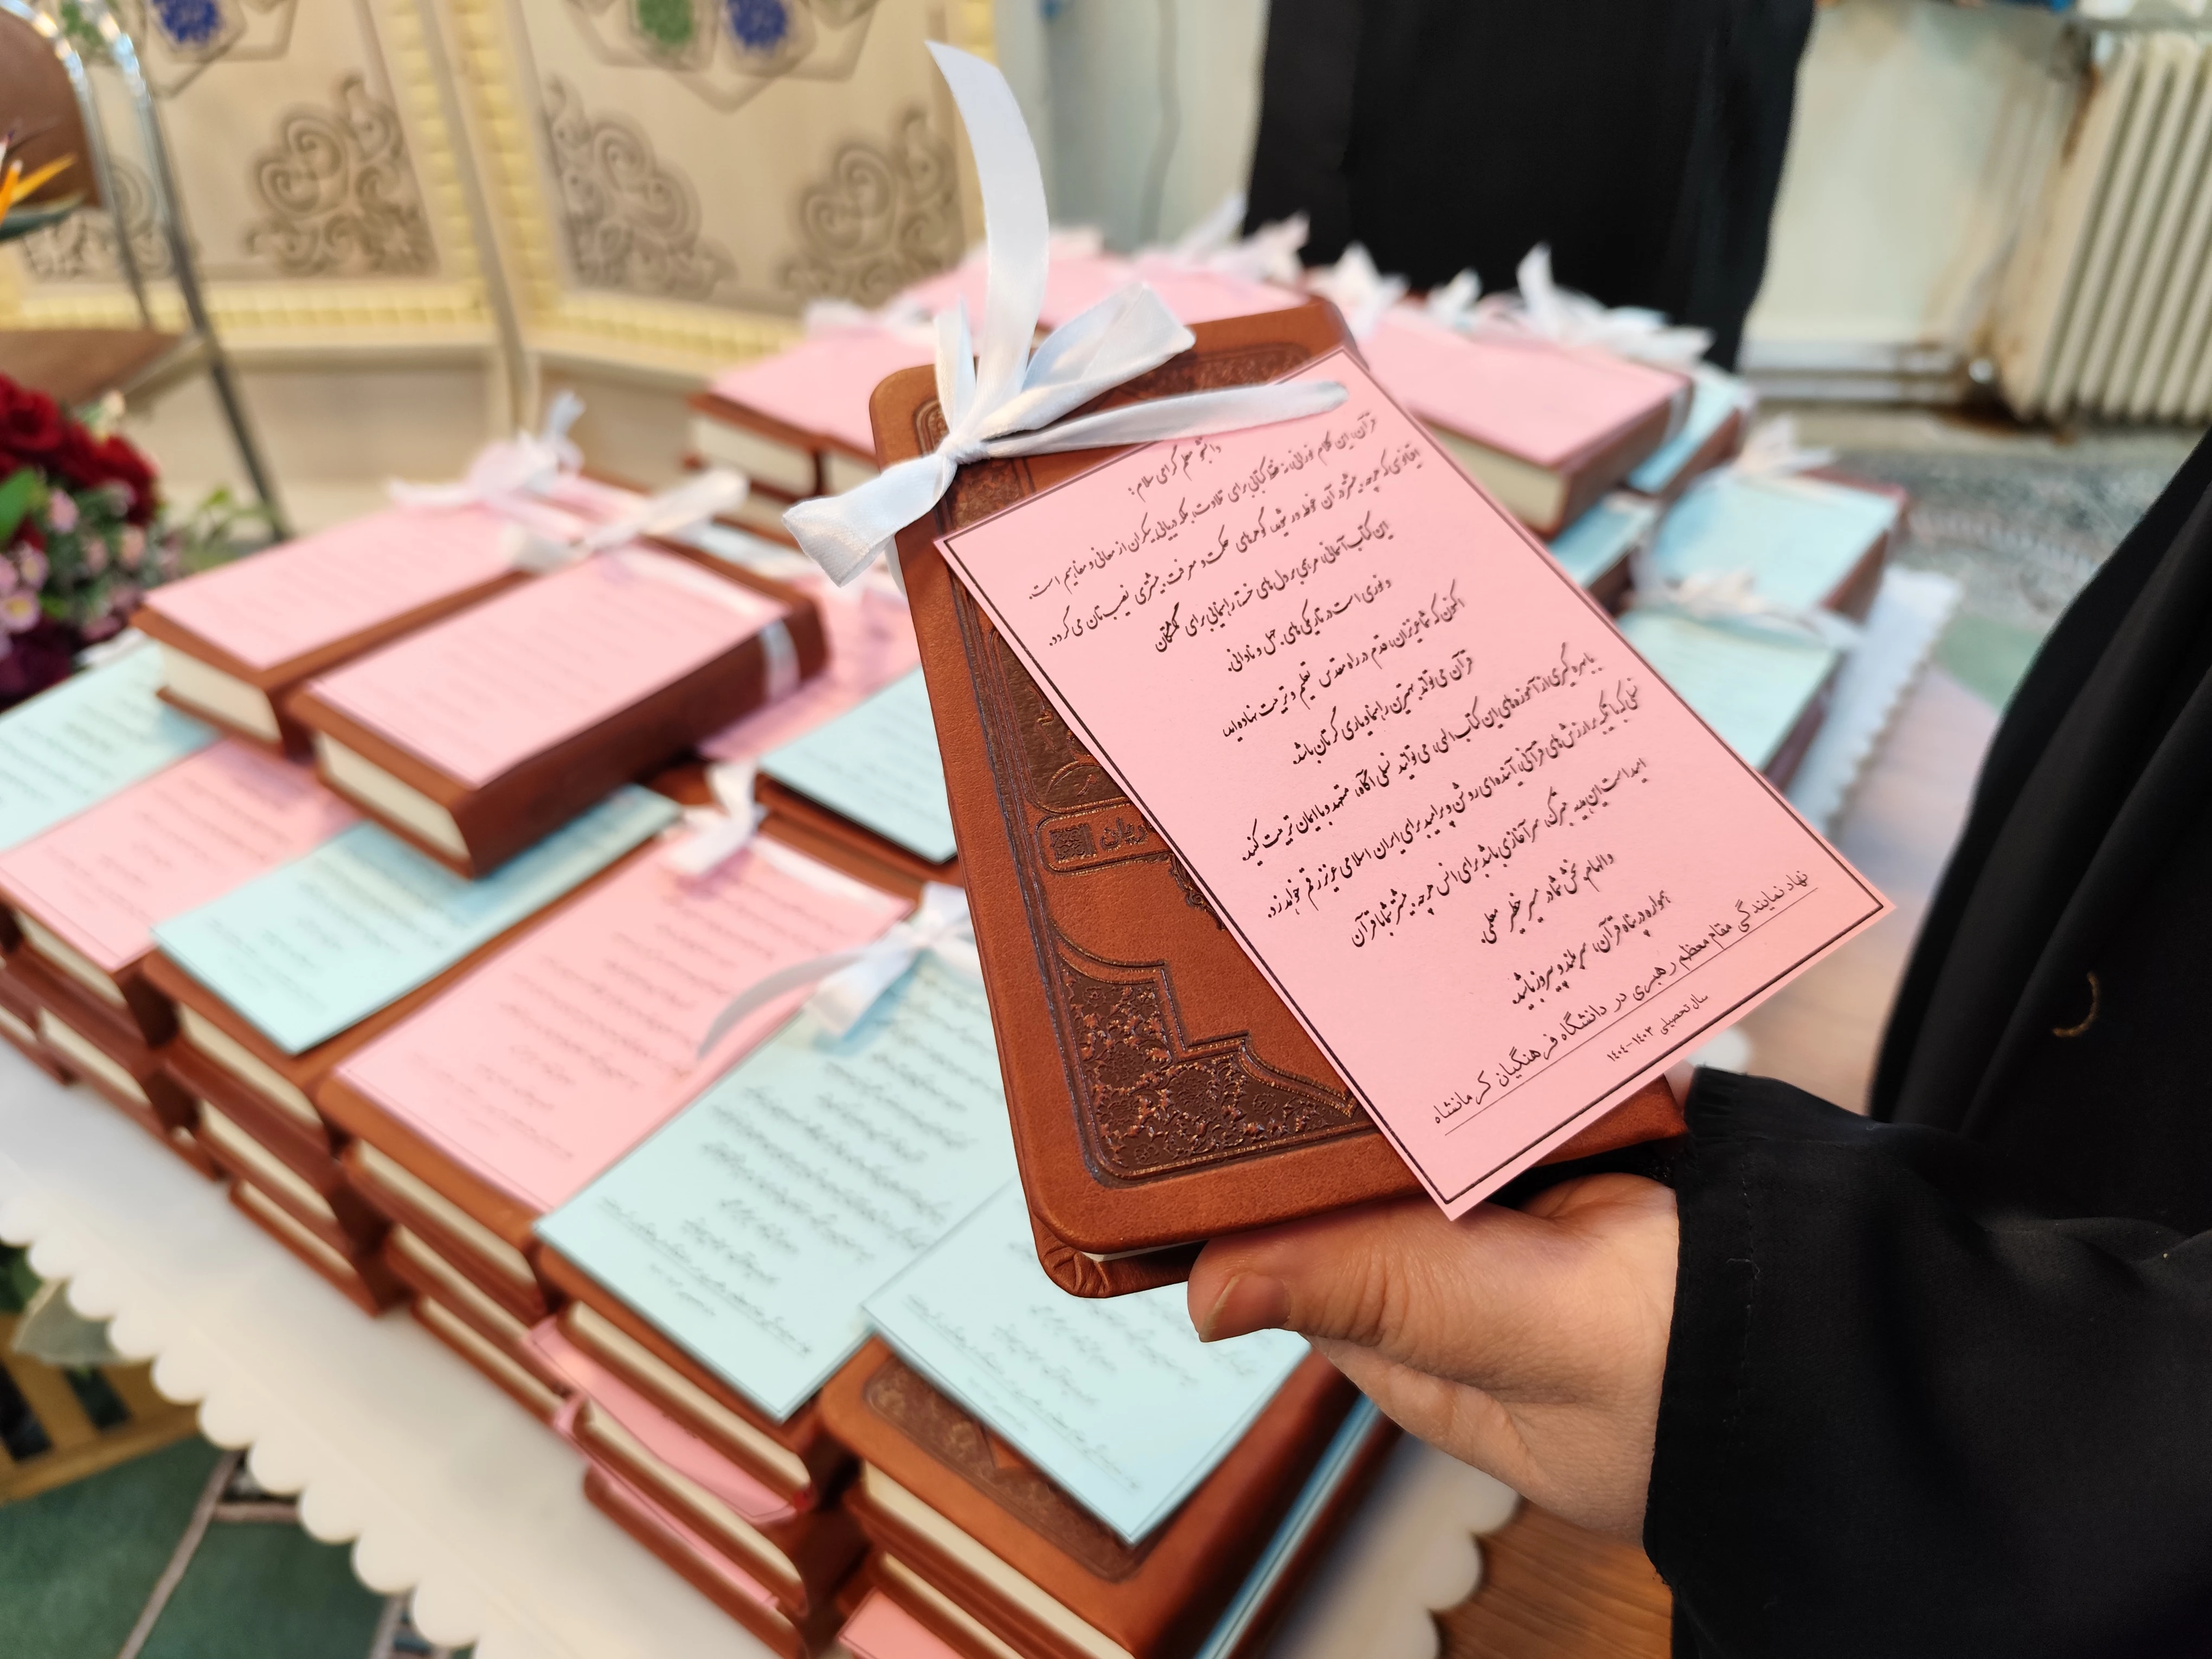 دانشجو معلم گرامی سلام؛
قرآن، این کلام نورانی، نه فقط کتابی برای تلاوت، بلکه دریایی بیکران از معانی و مفاهیم است.
اقیانوسی که هرچه بیشتر در آن غوطه‌ور شوید، گوهرهای حکمت و معرفت بیشتری نصیب‌تان می‌گردد.
این کتاب آسمانی، مرهمی بر دل‌های خسته، راهنمایی برای گمگشتگان
و نوری است در تاریکی‌های جهل و نادانی.
اکنون که شما عزیزان، قدم در راه مقدس تعلیم و تربیت نهاده‌اید،
قرآن می‌تواند بهترین راهنما و یاری‌گرتان باشد.
با بهره‌گیری از آموزه‌های این کتاب الهی، می‌توانید نسلی آگاه، متعهد و با ایمان تربیت کنید.
نسلی که با تکیه بر ارزش‌های قرآنی، آینده‌ای روشن و پرامید برای ایران اسلامی عزیز رقم خواهد زد.
امید است این هدیه متبرک، سرآغازی باشد برای انس هرچه بیشتر شما با قرآن
و الهام بخش شما در مسیر خطیر معلمی.
همواره در پناه قرآن، سربلند و پیروز باشید.
نهاد نمایندگی مقام معظم رهبری در دانشگاه فرهنگیان کرمانشاه
سال تحصیلی ۱۴۰۳-۱۴۰۴